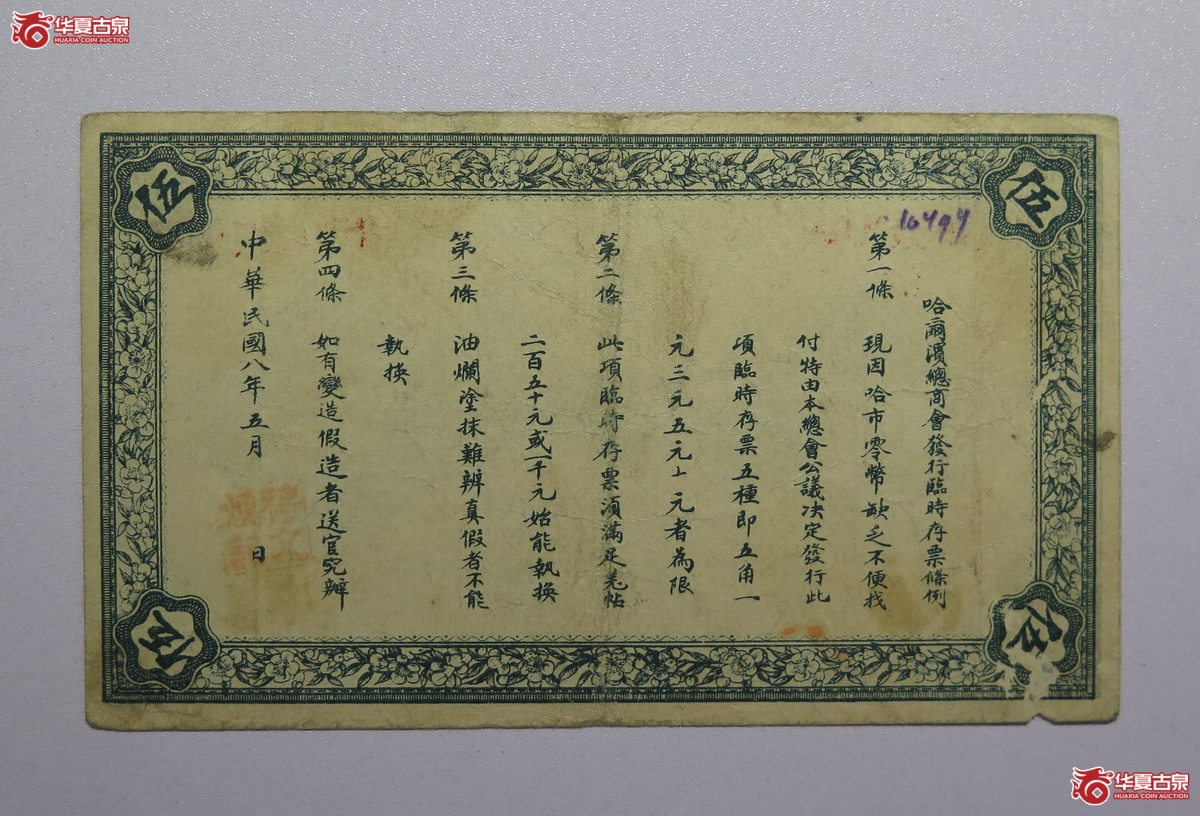 华夏古泉
HUAXIA COIN AUCTION
伍
伍
16494
哈爾濱總商會發行臨時存票條例
第一條 現因哈市零幣缺乏不便找
付特由本總會公議決定發行此
項臨時存票五種即五角一
元三元五元十元者為限
第二條 此項臨時存票須滿足羌帖
二百五十元或一千元始能執換
第三條 油爛塗抹難辨真假者不能
執換
第四條 如有變造假造者送官究辦
中華民國八年五月 日
伍
伍
华夏古泉
HUAXIA COIN AUCTION